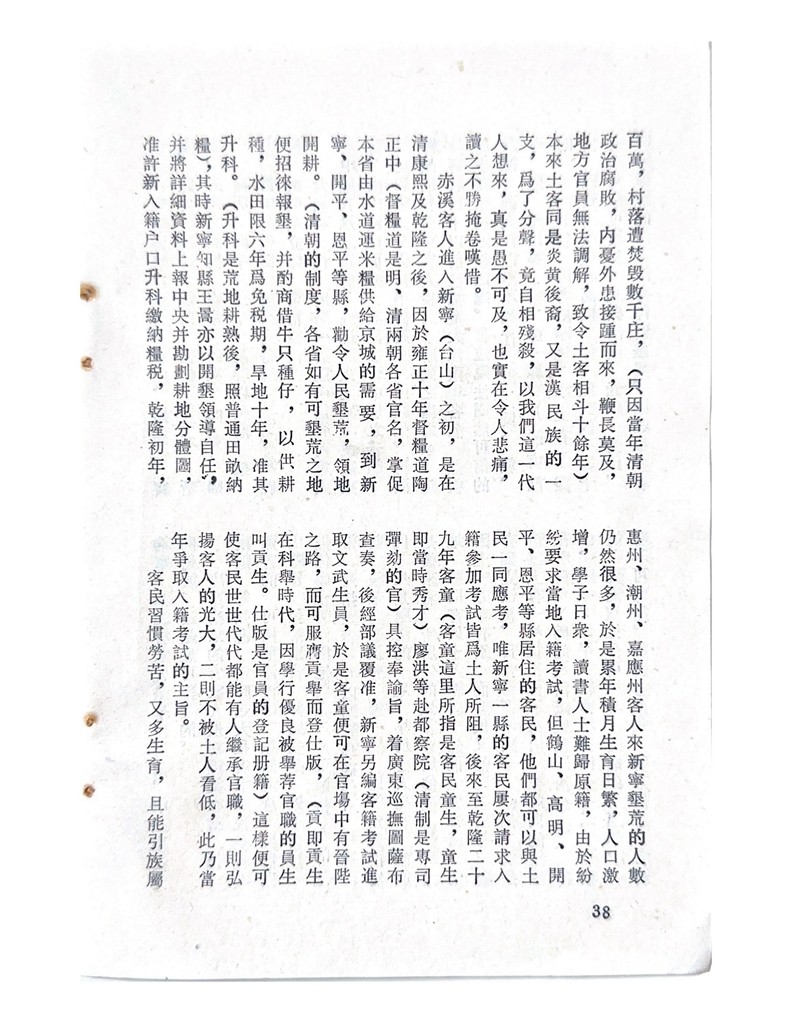 百萬，村落遭焚毀數千庄，（只因當年清朝
政治腐敗，内憂外患接踵而來，鞭長莫及，
地方官員無法調解，致令土客相斗十餘年）
本來土客同是炎黄後裔，又是漢民族的一
支，爲了分聲，竟自相殘殺，以我們這一代
人想來，真是愚不可及，也實在令人悲痛，
讀之不勝掩卷嘆惜。
赤溪客人進入新寧（台山）之初，是在
清康熙及乾隆之後，因於雍正十年督糧道陶
正中（督糧道是明、清兩朝各省官名，掌促
本省由水道運米糧供給京城的需要，到新
寧、開平、恩平等縣，勸令人民墾荒，領地
開耕。（清朝的制度，各省如有可墾荒之地
便招徠報墾，并酌商借牛只種仔，以供耕
種，水田限六年爲免税期，旱地十年，准其
升科。（升科是荒地耕熟後，照普通田畝納
糧），其時新寧知縣王暠亦以開墾領導自任，
并將詳細資料上報中央并勘劃耕地分體圖，
准許新入籍户口升科繳納糧税，乾隆初年，
惠州、潮州、嘉應州客人來新寧墾荒的人數
仍然很多，於是累年積月生育日繁，人口激
增，學子日衆，讀書人士難歸原籍，由於紛
紛要求當地入籍考試，但鶴山、高明、開
平、恩平等縣居住的客民，他們都可以與土
民一同應考，唯新寧一縣的客民屢次請求入
籍參加考試皆爲土人所阻，後來至乾隆二十
九年客童（客童這里所指是客民童生，童生
即當時秀才）廖洪等赴都察院（清制是專司
彈劾的官）具控奉諭旨，着廣東巡撫圖薩布
查奏，後經部議覆准，新寧另編客籍考試進
取文武生員，於是客童便可在官場中有晉陛
之路，而可服膺貢舉而登仕版，（貢即貢生
在科舉時代，因學行優良被舉荐官職的員生
叫貢生。仕版是官員的登記册籍）這樣便可
使客民世世代代都能有人繼承官職，一則弘
揚客人的光大，二則不被土人看低，此乃當
年爭取入籍考試的主旨。
客民習慣勞苦，又多生育，且能引族屬
38